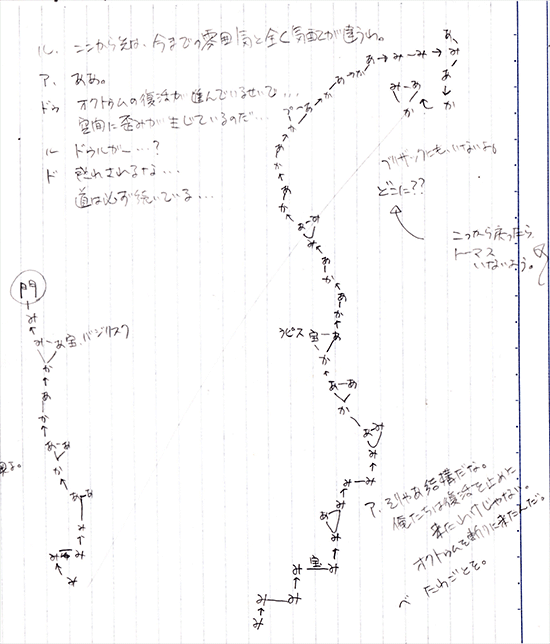 ル. ここから先は、今までの雰囲気と全く気配が違うわ。
ア. ああ。
ドゥ オクトゥムの復活が進んでいるせいで...
空間に歪みが生じているのだ...
ル ドゥルガー...?
ド 惑わされるな...
道は必ず続いている...
あ→か→あ→か→あ→み→み→み
あ
み
あ
か
み→あ
か
ブリザックにもいないよ。
どこに??
こっから戻ったら
トーマス
いないよう。
門
み
み→あ 宝. バジリスク
か
あ
か
あ→あ
か
あ→あ
み
み
み
み
か
あ
か
あ
か
あ→み
み
あ
か
あ
か
あ
ラピス 宝
か
あ→あ
か
あ→み
み
み→み
み
あ
み
み 宝 み
み
み→み
み
ア. そりゃあ結構だな。
俺たちは復活を止めに
来たわけじゃない。
オクトゥムを斬りに来たんだ。
ベ たわごとを。